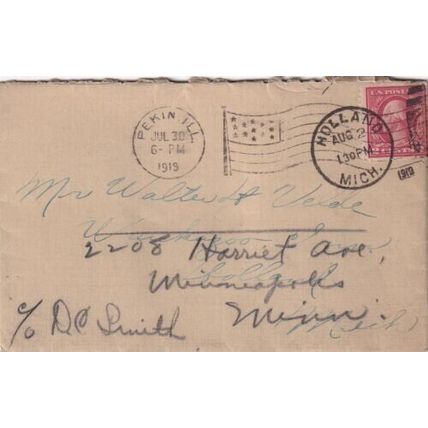 PEKIN, ILL.
JUL 30
6- PM
1919
HOLLAND
AUG 2
1 30 PM
MICH.
1919
U.S. POST
Mr Walter H Velde
2208 Harriet Ave,
Minneapolis
Minn.
Mich
c/o D.C. Smith